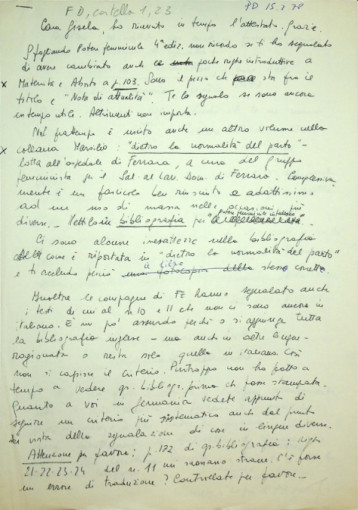 F D, cartella 1, 23
PD 15.2.78
Cara Gisela, ho ricevuto in tempo l'attestato. Grazie.
Sfogliando Potere femminile 4ª ediz. non ricordo se ti ho segnalato
di aver cambiato anche parte introduttiva a
Maternità e Aborto a p. 103. Sono il pezzo che sta fra il
titolo e "Nota di attualità". Te lo segnalo se sono ancora
in tempo utile. Altrimenti non importa.
Nel frattempo è uscito anche un altro volume nella
collana Marsilio: "dietro la normalità del parto"
lotta all'ospedale di Ferrara, a cura del gruppo
femminista per il Sal. al Lav. Dom. di Ferrara.
mente è un fascicolo ben riuscito e adattissimo
ad un uso di massa nelle più
diverse. bibliografia per "Potere femminile
Ci sono alcune inesattezze nella bibliografia
come è riportata in "dietro la normalità del parto"
e ti accludo perciò fotocopia della stessa corretta.
Inoltre le compagne di FE hanno segnalato anche
i testi di cui al n. 10 e 11 che non ci sono ancora in
italiano. È un po' assurdo perché o si aggiunge tutta
la bibliografia inglese - ma anche in altre lingue -
ragionata o resta solo quella in italiano. Così
non si capisce il criterio. Purtroppo non ho fatto a
tempo a vedere bibliogr. prima che fosse stampata.
Quanto a voi in germania vedete appunto di
seguire un criterio più sistematico anche dal punto
di vista delle segnalazioni di cose in lingue diverse.
Attenzione per favore: p. 172 di bibliografia: righe
21-22-23-24 del n. 11 mi suonano strane. C'è forse
un errore di traduzione? Controllate per favore.